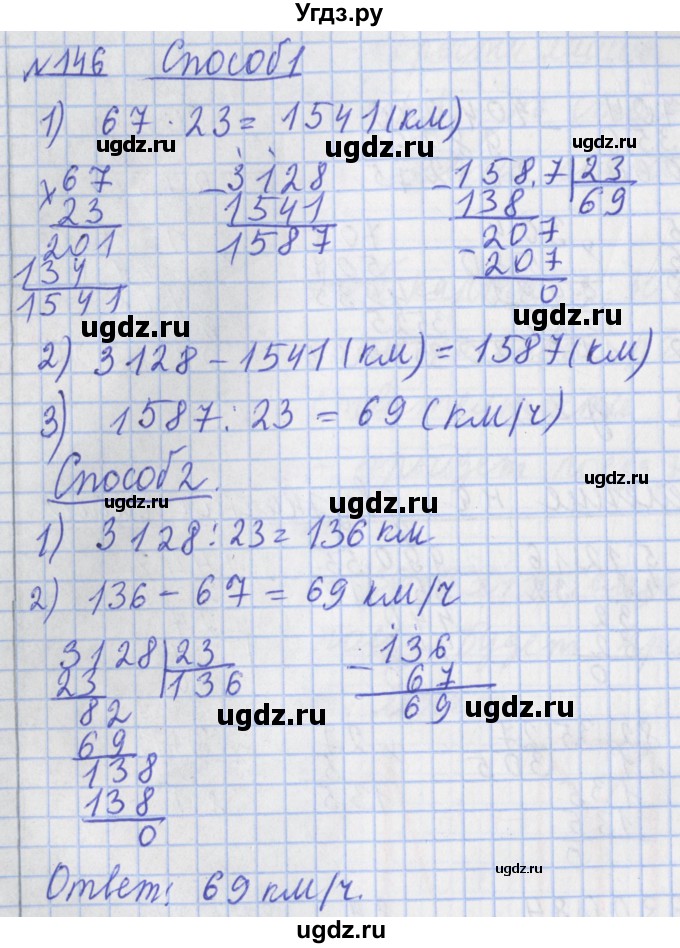 Угдз.ру
№146 Способ 1
1) 67 · 23 = 1541 (км)
ugdz.ru ugdz.ru ugdz.ru
× 67 - 3128 - 1587 | 23
23 1541 138 69
201 1587 207
134 - 207
1541 0
ugdz.ru ugdz.ru ugdz.ru
ugdz.ru ugdz.ru
2) 3128 - 1541 (км) = 1587 (км)
3) 1587 : 23 = 69 (км/ч)
ugdz.ru ugdz.ru
Способ 2.
ugdz.ru
1) 3128 : 23 = 136 км
2) 136 - 67 = 69 км/ч
3128 | 23 - 136
23 136 67
82 69
ugdz.ru ugdz.ru
69
138
138
0
ugdz.ru
Ответ: 69 км/ч.
ugdz.ru